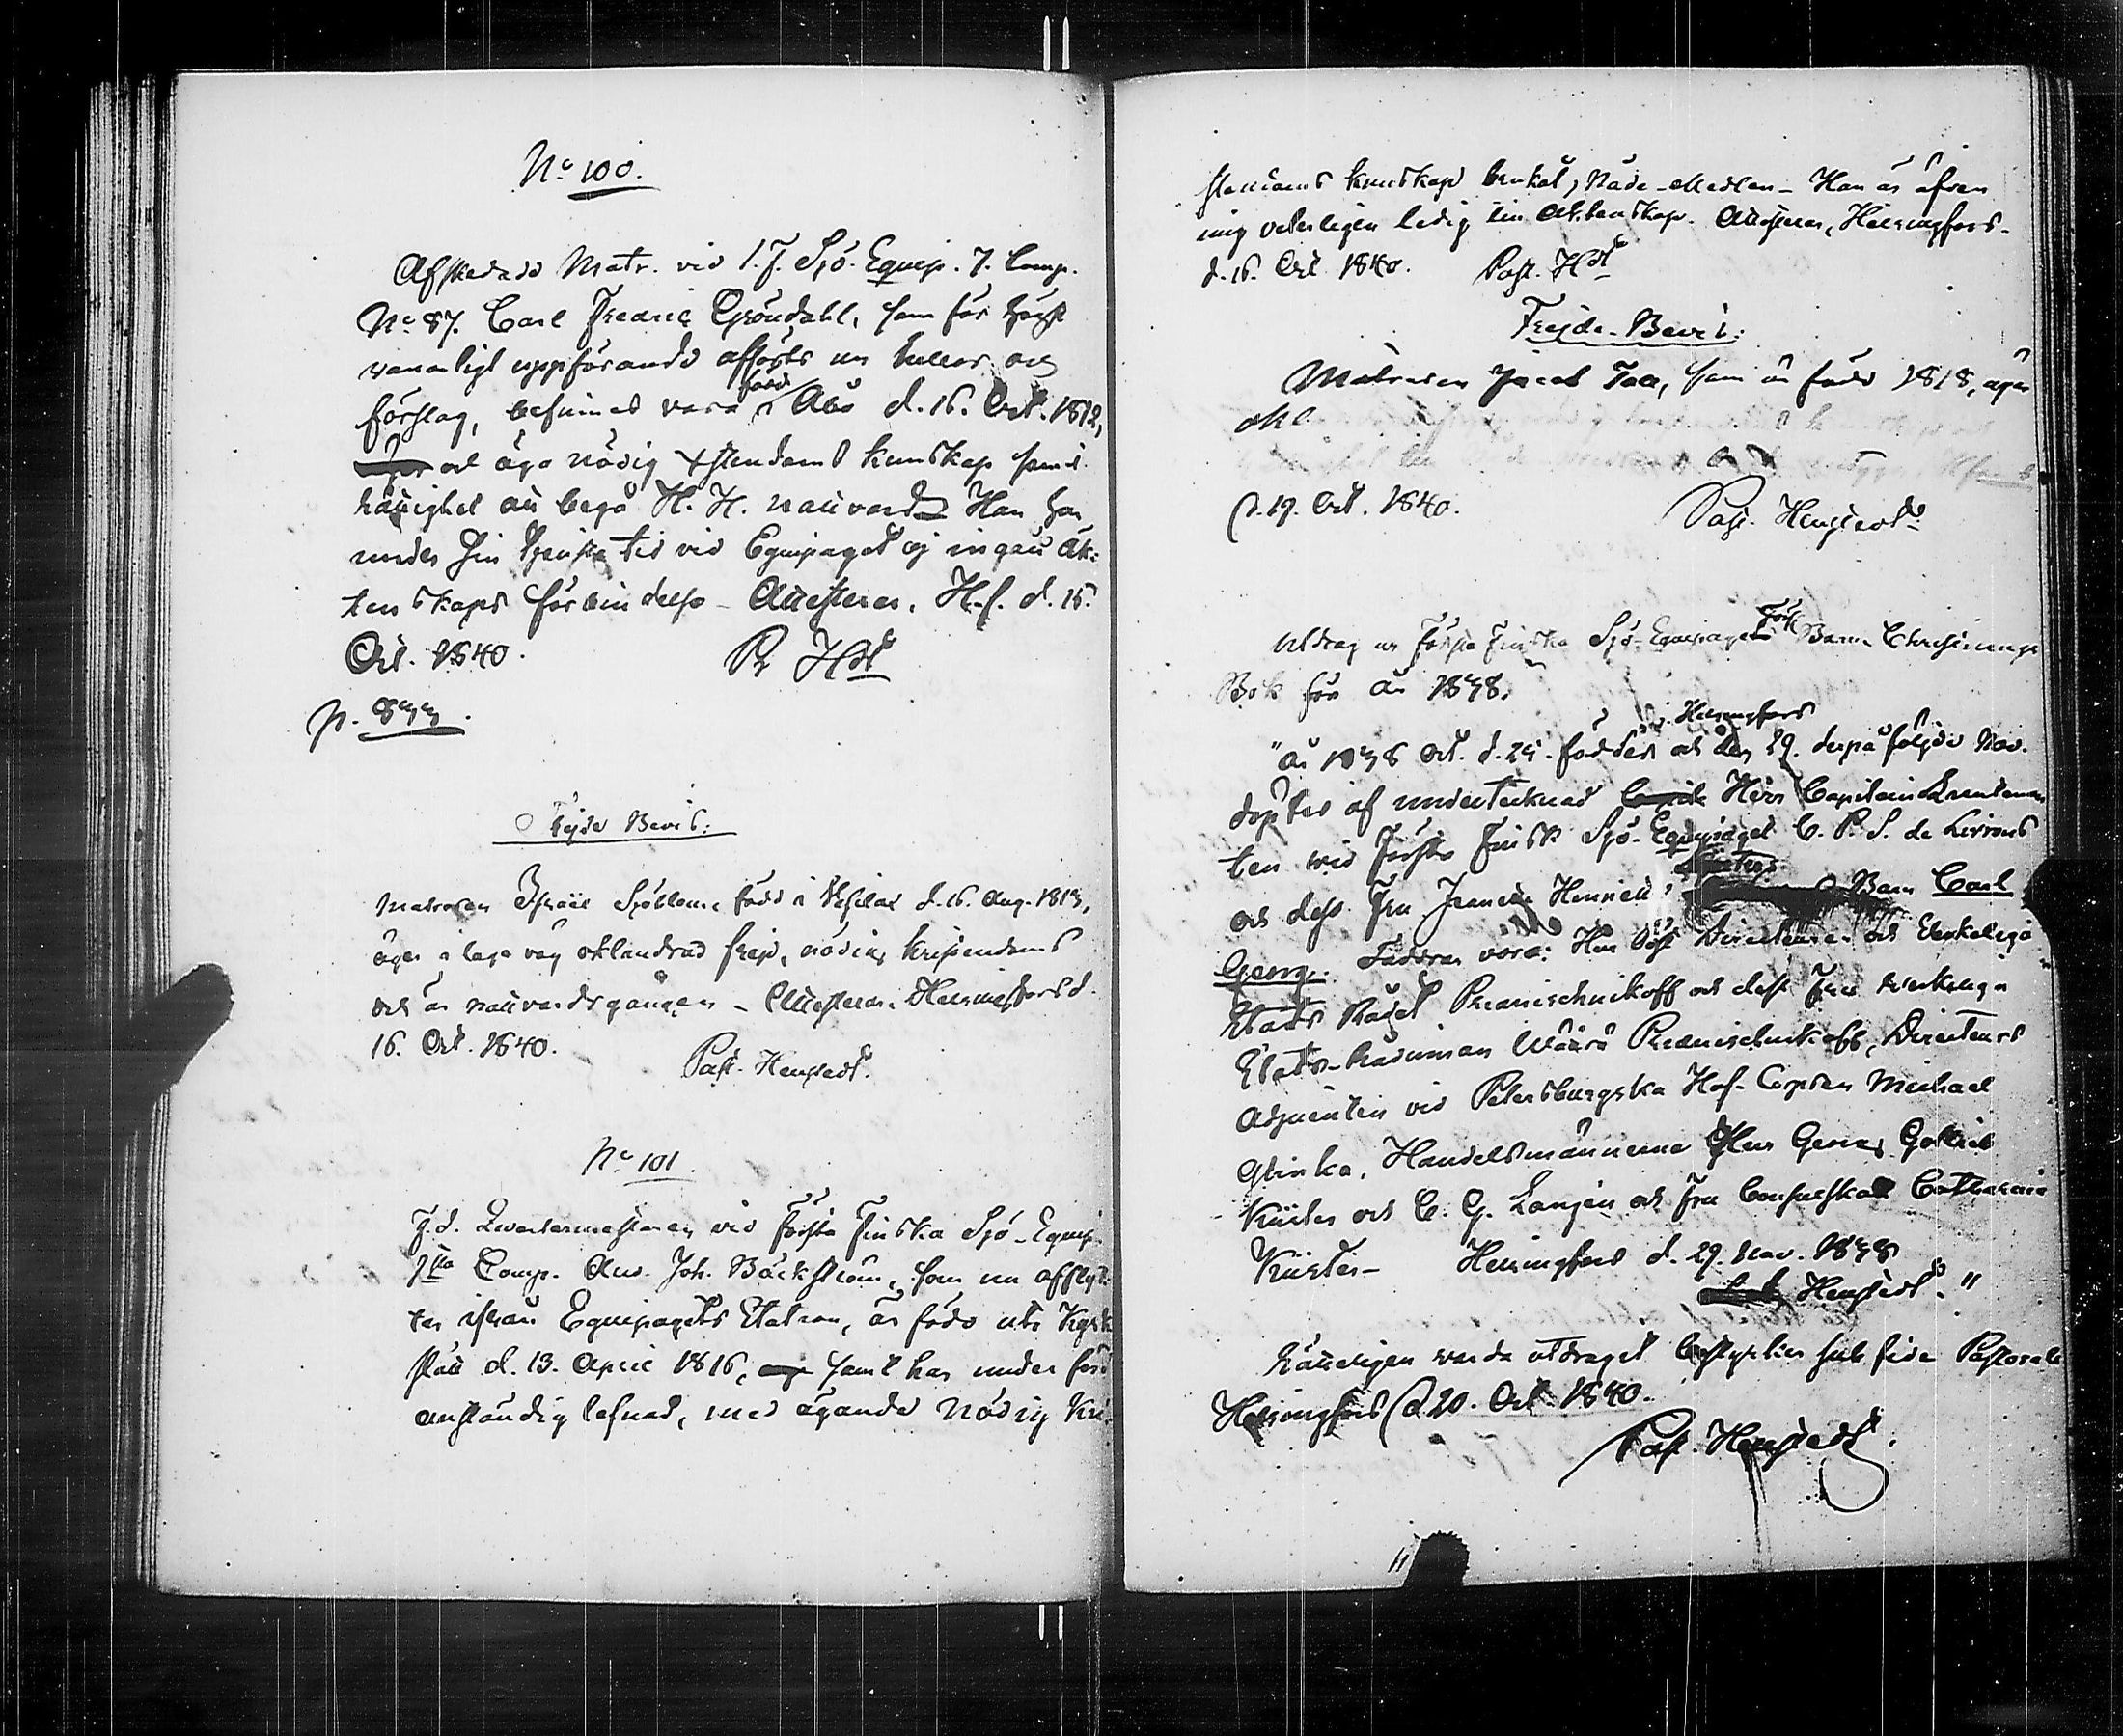 No 100.
Afskedade Matr. vid 1. F. Sjö-Equip. 7. Comp.
No 87. Carl Fredric Gröndahl, som för högst
vanartigt uppförande afförts ur rullor och
förslag, befinnes vara född i Åbo d. 16. Oct. 1812,
och äga nödig Xstendoms kunskap samt
rättighet att begå H. H. nattvard. Han har
under sin tjenste tid vid Equipaget ej ingått äk-
tenskaps förbindelse - Attesterar, H.f. d. 16.
Oct. 1840. P Hdt
p. 833.
Frejde Bevis:
Matrosen Israël Sjöblom, född i d. 16. Aug. 1813,
äger i laga väg oklandrad frejd, nödig kristendoms
och är nattvardsgången - Attesterar. Helsingfors d.
16. Oct. 1840. Past. Hengstedt.
No 101.
F.d. Quartermästaren vid Första Finska Sjö-Equip.
1sta Comp. And. Joh. Bäckström, som nu afflyt-
tar ifrån Equipagets Station, är född uti Kyrk
slätt d. 13. April 1816, samt har under fört
anständig lefnad, med ägande nödig Kri-
stendoms kunskap brukat Nåde-Medlen - Han är äfven
mig veterligen ledig till Äktenskap. Attesterar, Helsingfors
d. 16. Oct. 1840. Past. Hdt
Frejde-Bevis:
Matrosen Jacob Tall, som är född 1818, äger
okl.
d. 19. Oct. 1840. Past. Hengstedt
Utdrag ur Första Finska Sjö-Equipagets Förs. Barn Christnings
Bok för år 1838.
"År 1838 Oct. d. 25. föddes i Helsingfors och den 29. derpå följde Nov.
döptes af undertecknad Herr Capitain Lieutenan
ten vid Första Finsk Sjö-Equipaget C. P. S. de Livrons
och dess Fru Henriett Barn Carl
Georg. Faddrar voro: Herr Post Directeuren och Verkeliga
Etats Rådet Preanischnikoff och dess Fru verkeliga
Etats-Rådinnan Wäära Preanischnikoff, Directeurs
Adjuncten vid Petersburgska Hof-Corpsen Michael
Glinka, Handelsmännerne Herr Georg Gottlieb
Küster och C. G. Langén och Fru Consulskan Catharina
Küster - Helsingfors d. 29. Nov. 1838
Hengstedt."
Rätteligen vorda utdraget bestyrkes sub fide Pastorali
Helsingfors d 20. Oct 1840.
Past. Hengstedt.